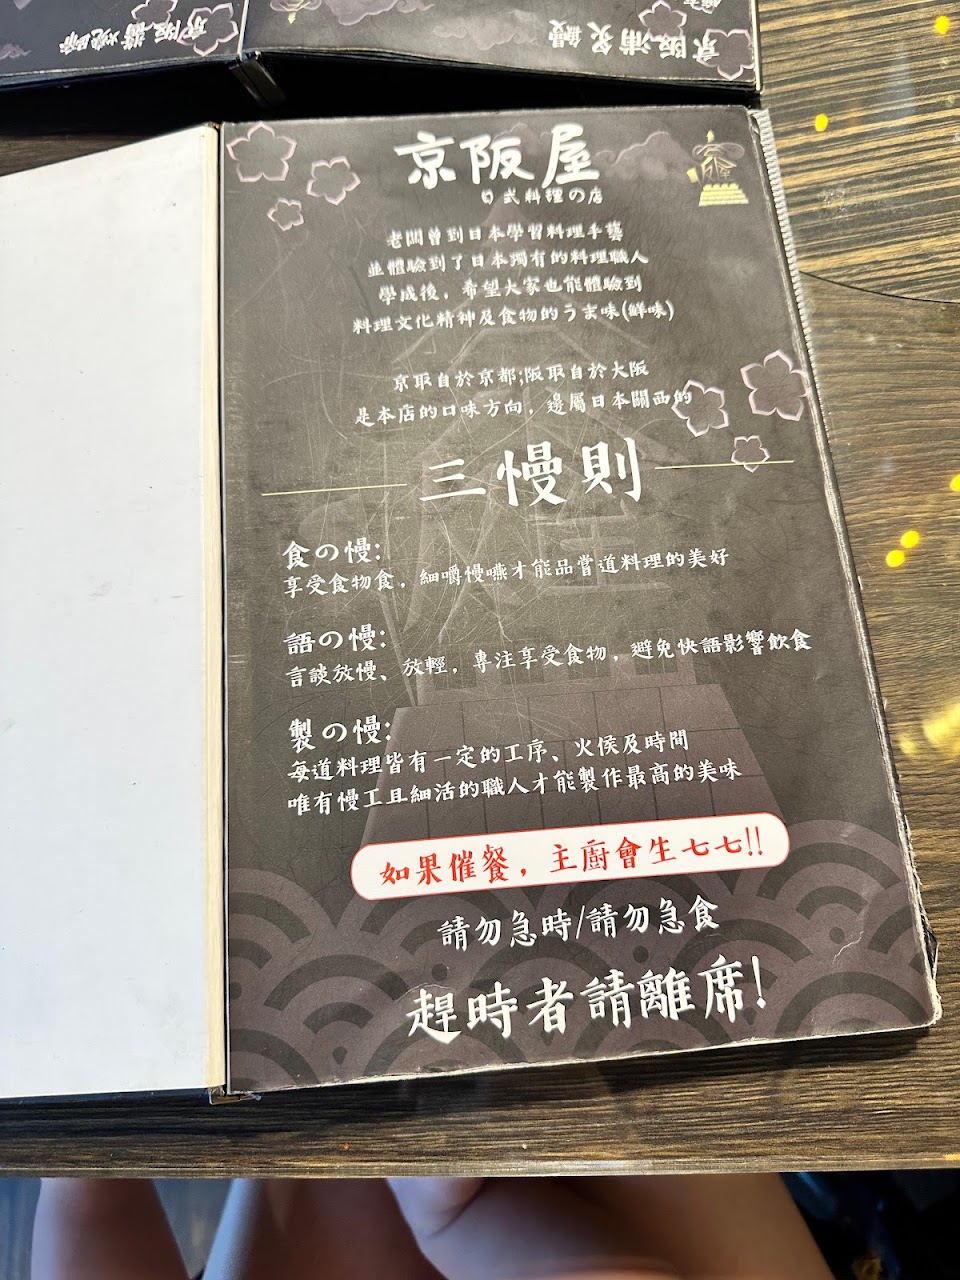 京阪醬燒蹄
京阪蒲炙鰻
京阪屋
日式料理の店
老闆曾到日本學習料理手藝
並體驗到了日本獨有的料理職人
學成後，希望大家也能體驗到
料理文化精神及食物的うま味(鮮味)
京取自於京都;阪取自於大阪
是本店的口味方向，邊屬日本關西的
三慢則
食の慢:
享受食物食，細嚼慢嚥才能品嘗道料理的美好
語の慢:
言談放慢、放輕，專注享受食物，避免快語影響飲食
製の慢:
每道料理皆有一定的工序、火侯及時間
唯有慢工且細活的職人才能製作最高的美味
如果催餐，主廚會生七七!!
請勿急時/請勿急食
趕時者請離席!